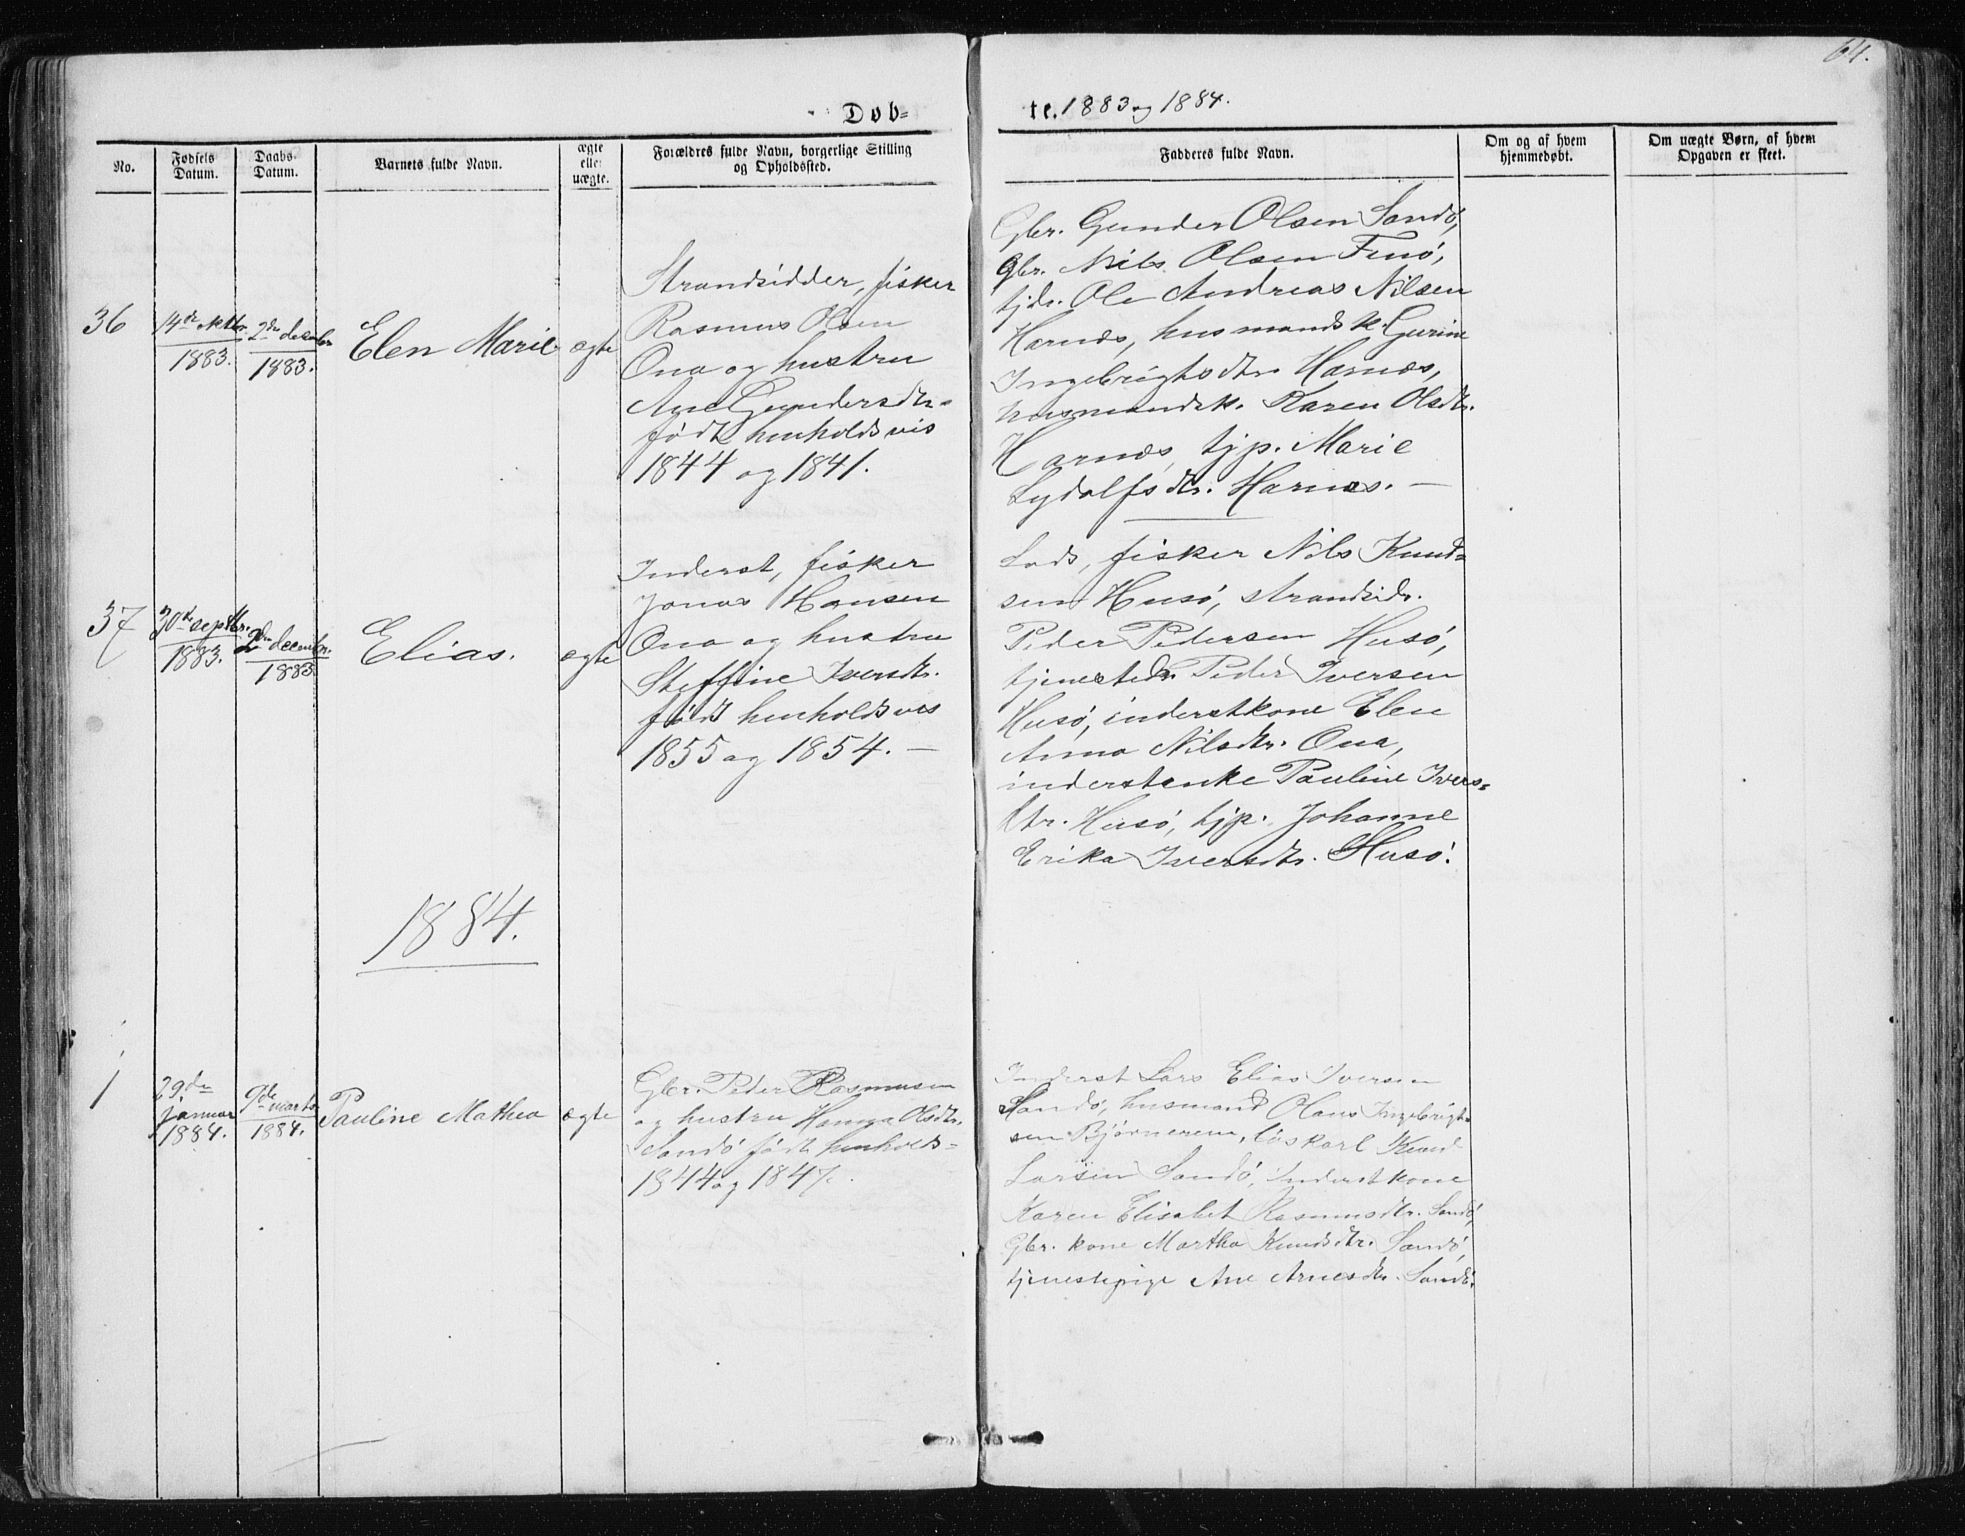 64.
Døb=
te. 1883 og 1884.
No.
Fødsels Datum.
Daabs- Datum.
Barnets fulde Navn.
ægte eller uægte.
Forældres fulde Navn, borgerlige Stilling og Opholdssted.
Fadderes fulde Navn.
Om og af hvem hjemmedøbt.
Om uægte Børn, af hvem Opgaven er skeet.
36
14de oktbr. 1883.
2den december 1883.
Elen Marie
ægte
Strandsidder, fisker
Rasmus Olsen
Ona og hustru
Ane Gundersdtr.
født henholdsvis
1844 og 1841.
Gbr. Gunder Olsen Sandö,
Gbr. Nils Olsen Finö,
tjdr. Ole Andreas Nilsen
Harnæs, husmandsk. Gurine
Ingebrigtsdtr. Harnæs,
husmandsk. Karen Olsdtr.
Harnæs, tjp. Marie
Lydolfsdtr. Harnæs. —
37
30de septbr. 1883.
2den decembr. 1883
Elias.
ægte
Inderst, fisker
Jonas Hansen
Ona og hustru
Steffine Iversdtr.
født henholdsvis
1855 og 1854. —
Lods, fisker Nils Knud=
sen Husö, strandsidr.
Peder Pedersen Husö,
tjenestedr. Peder Iversen
Husö, inderstkone Elen
Anna Nilsdtr. Ona,
inderstenke Pauline Ivers=
dtr. Husö, tjp. Johanne
Erika Iversdtr. Husö.
1884.
1
29de januar 1884.
9de marts 1884.
Pauline Mathea
ægte
Gbr. Peder Rasmusen
og hustru Hanna Olsdtr.
Sandö født henholds=
1844 og 1847.
Inderst Lars Elias Iversen
Sandö, husmand Hans Ingebrigt=
sen Björnerem, löskarl Knud
Larsen Sandö, Inderstkone
Karen Elisabet Rasmusdtr. Sandö,
Gbr. kone Martha Knudsdtr. Sandö,
tjenestepige Ane Arnesdtr. Sandö.